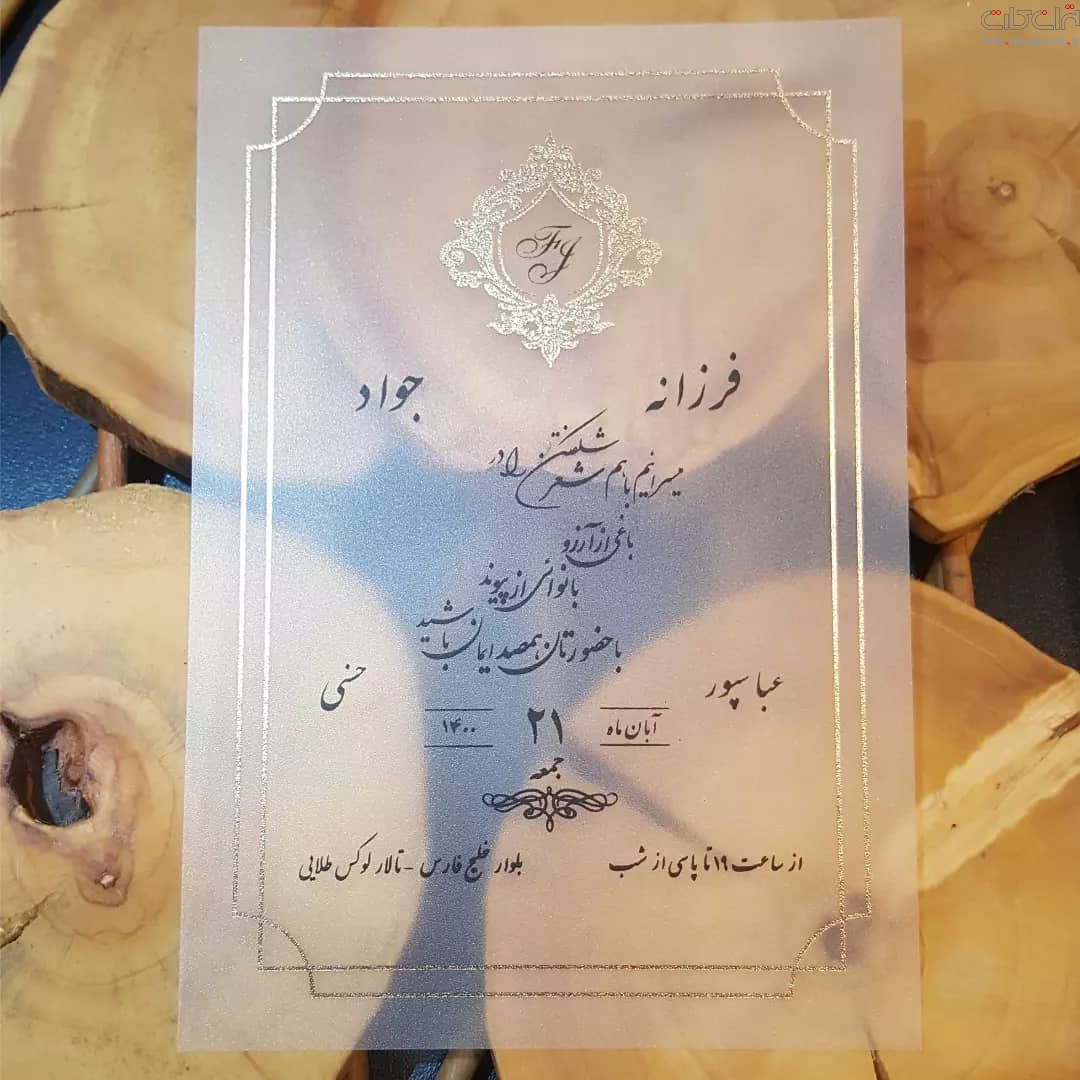 FJ
فرزانه جواد
میسرائیم باهم شعر شکفتن را در
باغی از آرزو
با نوای از پیوند
با حضورتان همصدایمان باشید
عباسپور حسنی
آبان ماه ۲۱ ۱۴۰۰
جمعه
از ساعت ۱۹ تا پاسی از شب بلوار خلیج فارس - تالار لوکس طلایی